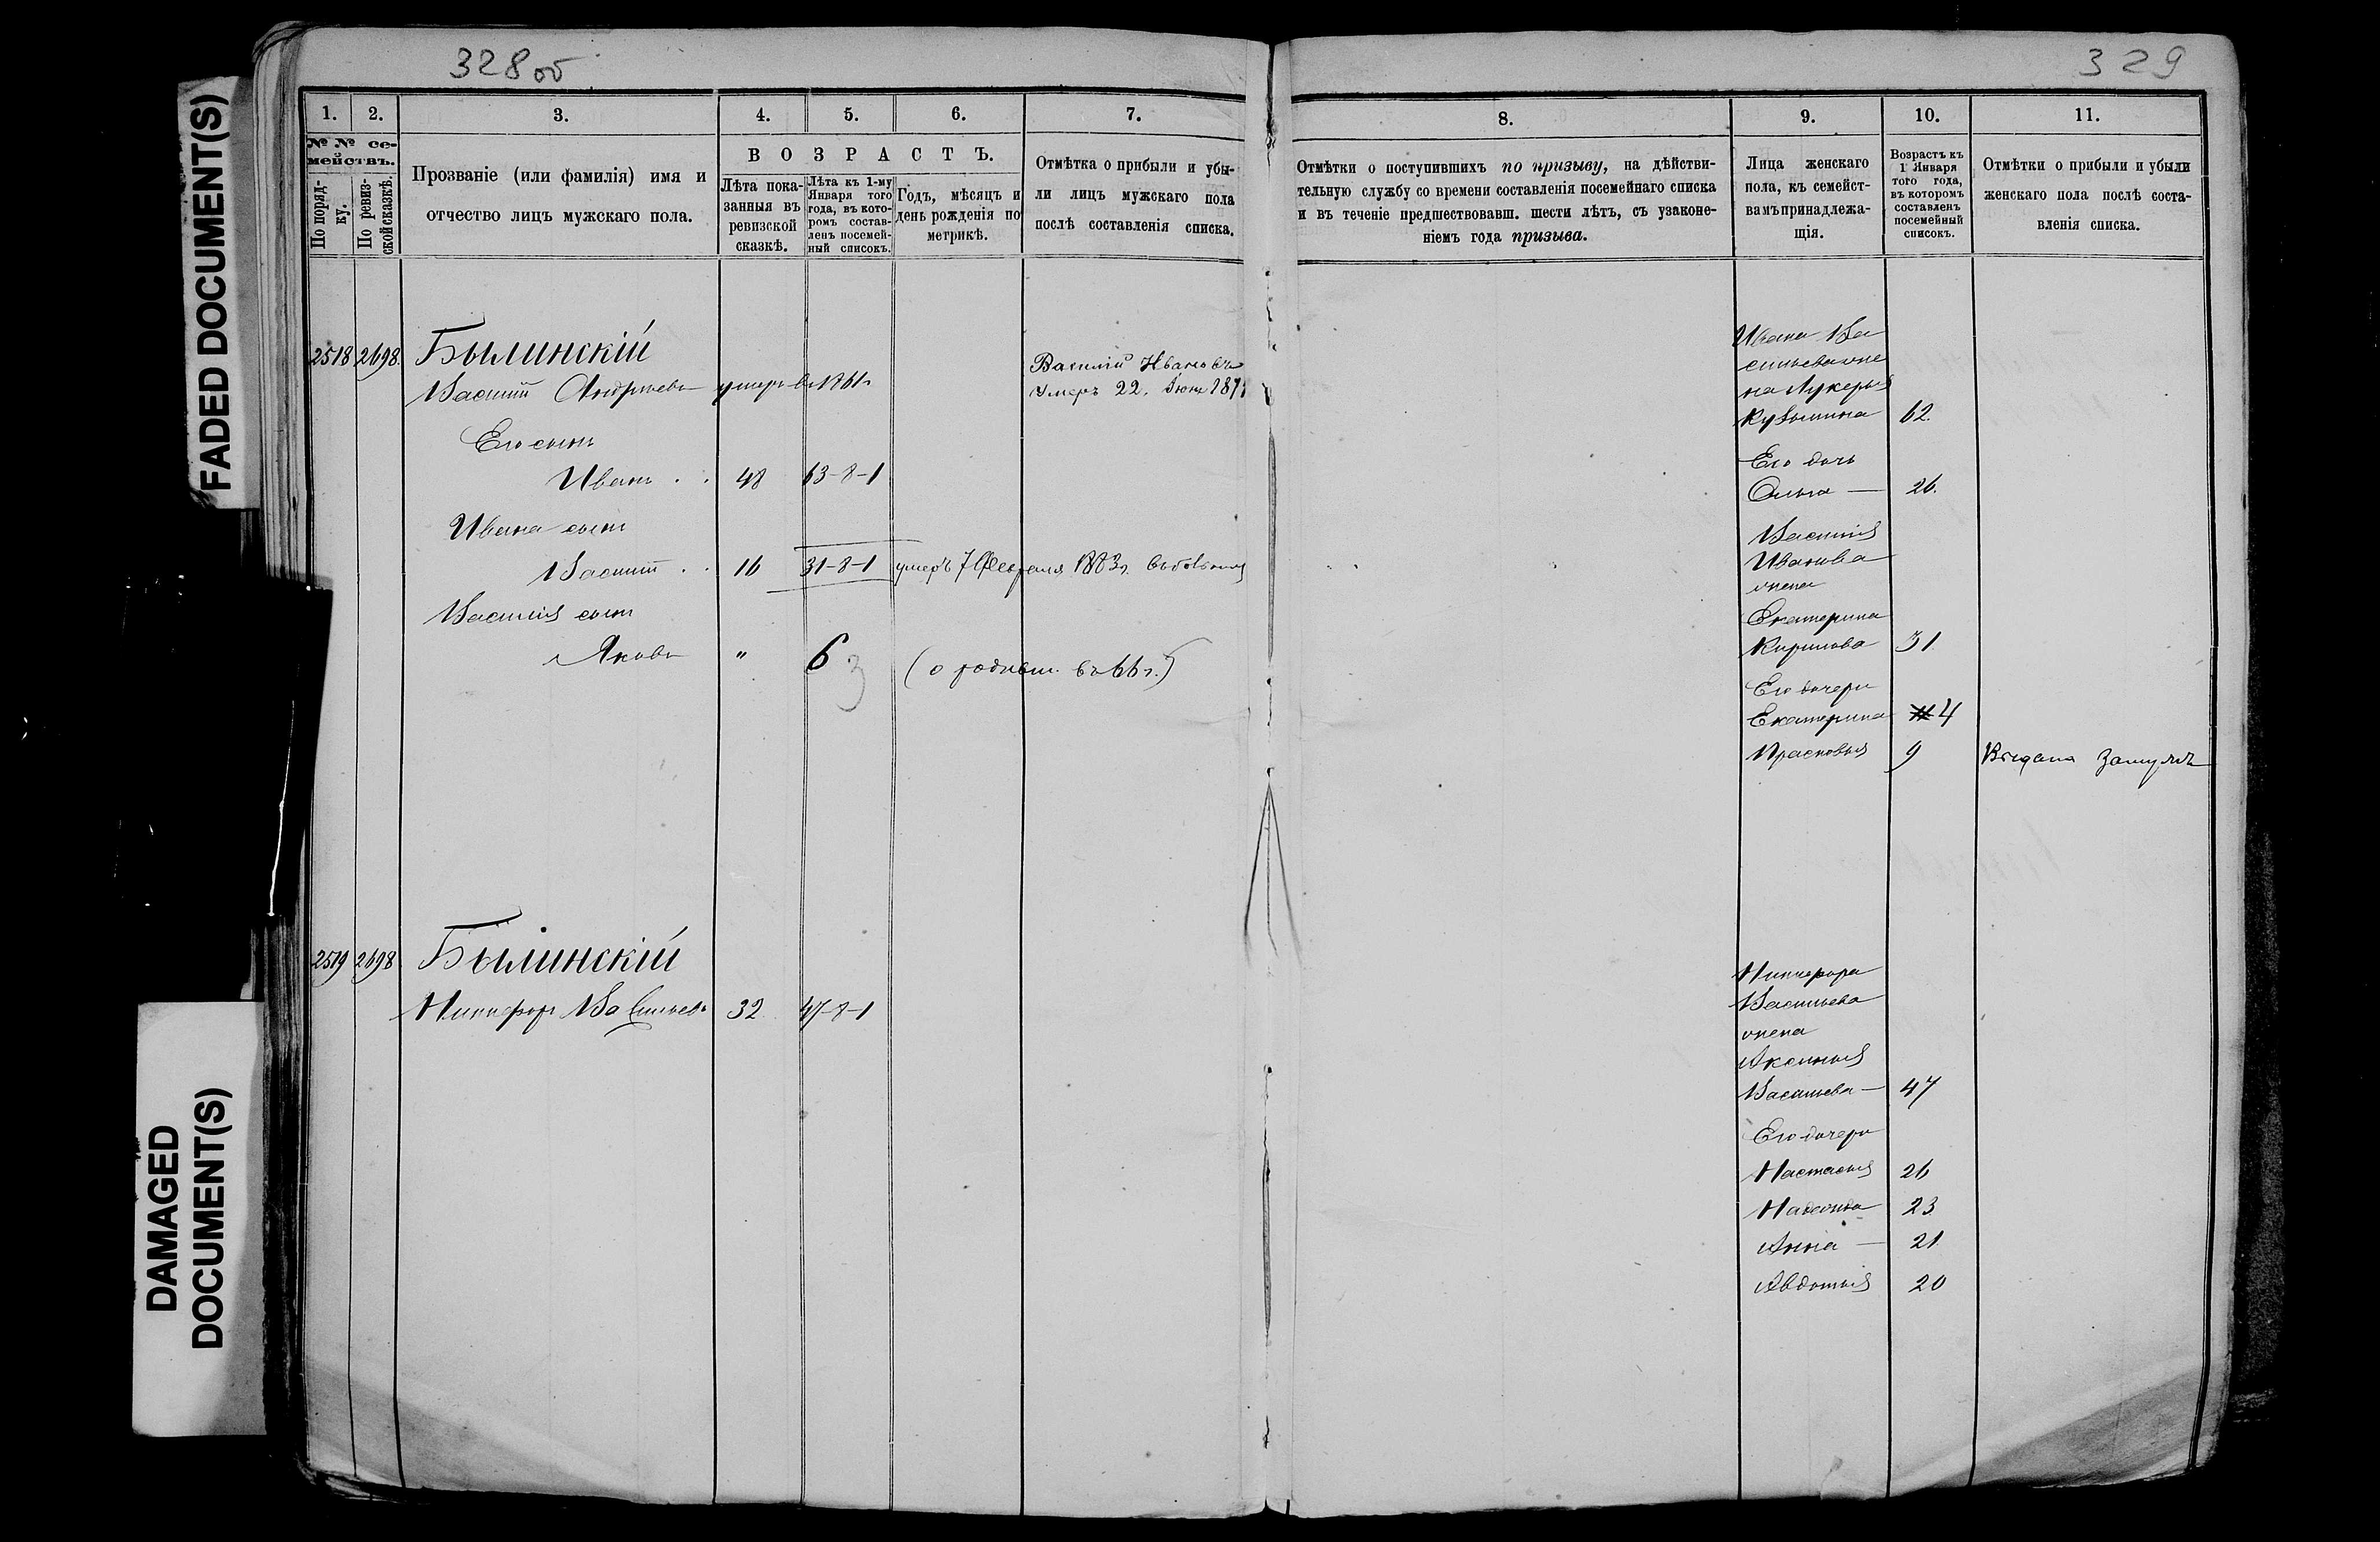 328 об
329
FADED DOCUMENT(S)
DAMAGED
DOCUMENT(S)
1. 2. 3. 4. 5. 6. 7.
№ № се-
мействъ.
По поряд-
ку.
По ревиз-
ской сказкѣ.
Прозваніе (или фамилія) имя и
отчество лицъ мужскаго пола.
ВОЗРАСТЪ.
Лѣта пока-
занныя въ
ревизской
сказкѣ.
Лѣта къ 1-му
Января того
года, въ кото-
ромъ состав-
ленъ посемей-
ный списокъ.
Годъ, мѣсяцъ и
день рожденія по
метрикѣ.
Отмѣтка о прибыли и убы-
ли лицъ мужскаго пола
послѣ составленія списка.
2518 2698. Былинскій
Василій Андреевъ умеръ въ 1861г.
Василій Ивановъ
умеръ 22. Іюня 187
Его сынъ
Иванъ . . 48 63-8-1
Ивана сынъ
Василій . . 16 31-8-1 умеръ 7 Февраля 1883г.
Василія сынъ
Яковъ " 6 3 (о въ 66 г.)
2519 2698 Былинскій
Никифоръ Васильевъ 32 47-8-1
8. 9. 10. 11.
Отмѣтки о поступившихъ по призыву, на дѣйстви-
тельную службу со времени составленія посемейнаго списка
и въ теченіе предшествовавш. шести лѣтъ, съ узаконе-
ніемъ года призыва.
Лица женскаго
пола, къ семейст-
вамъ принадлежа-
щія.
Возрастъ къ
1 Января
того года,
въ которомъ
составленъ
посемейный
списокъ.
Отмѣтки о прибыли и убыли
женскаго пола послѣ соста-
вленія списка.
Ивана Ва
сильева же
на Лукерья
Кузьмина 62.
Его дочь
Ольга — 26.
Василія
Иванова
жена
Екатерина
Кирилова 31
Его дочери
Екатерина 4
Прасковья 9 Выдана замужъ
Никифора
Васильева
жена
Аксинья
Васильева — 47
Его дочери
Настасья 26
Надежда 23
Анна — 21
Авдотья 20